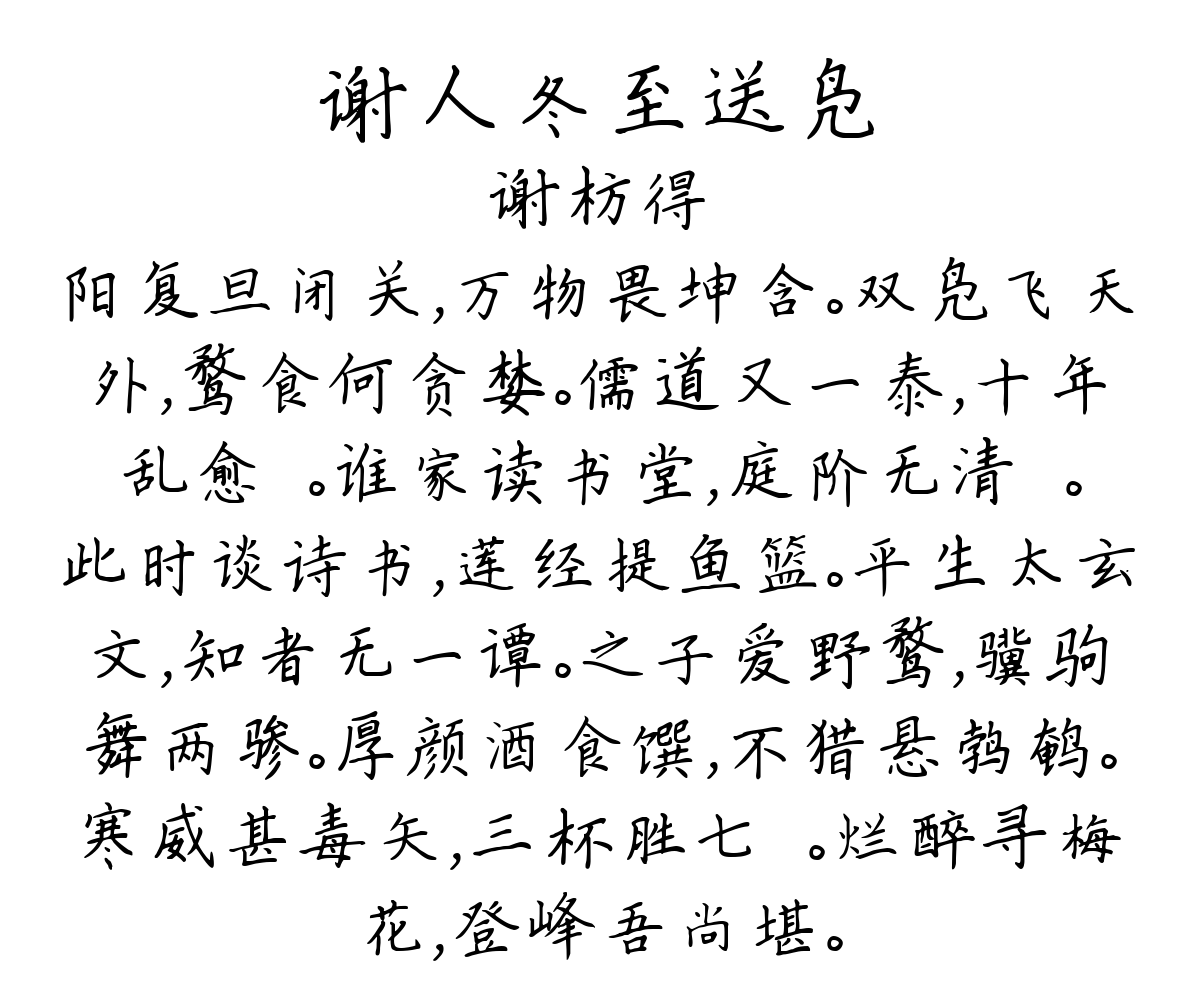 谢人冬至送凫
谢枋得
阳复旦闭关,万物畏坤含。双凫飞天
外,鹜食何贪婪。儒道又一泰,十年
乱愈 。谁家读书堂,庭阶无清 。
此时谈诗书,莲经提鱼篮。平生太玄
文,知者无一谭。之子爱野鹜,骥驹
舞两骖。厚颜酒食馔,不猎悬鹁鹌。
寒威甚毒矢,三杯胜七 。烂醉寻梅
花,登峰吾尚堪。